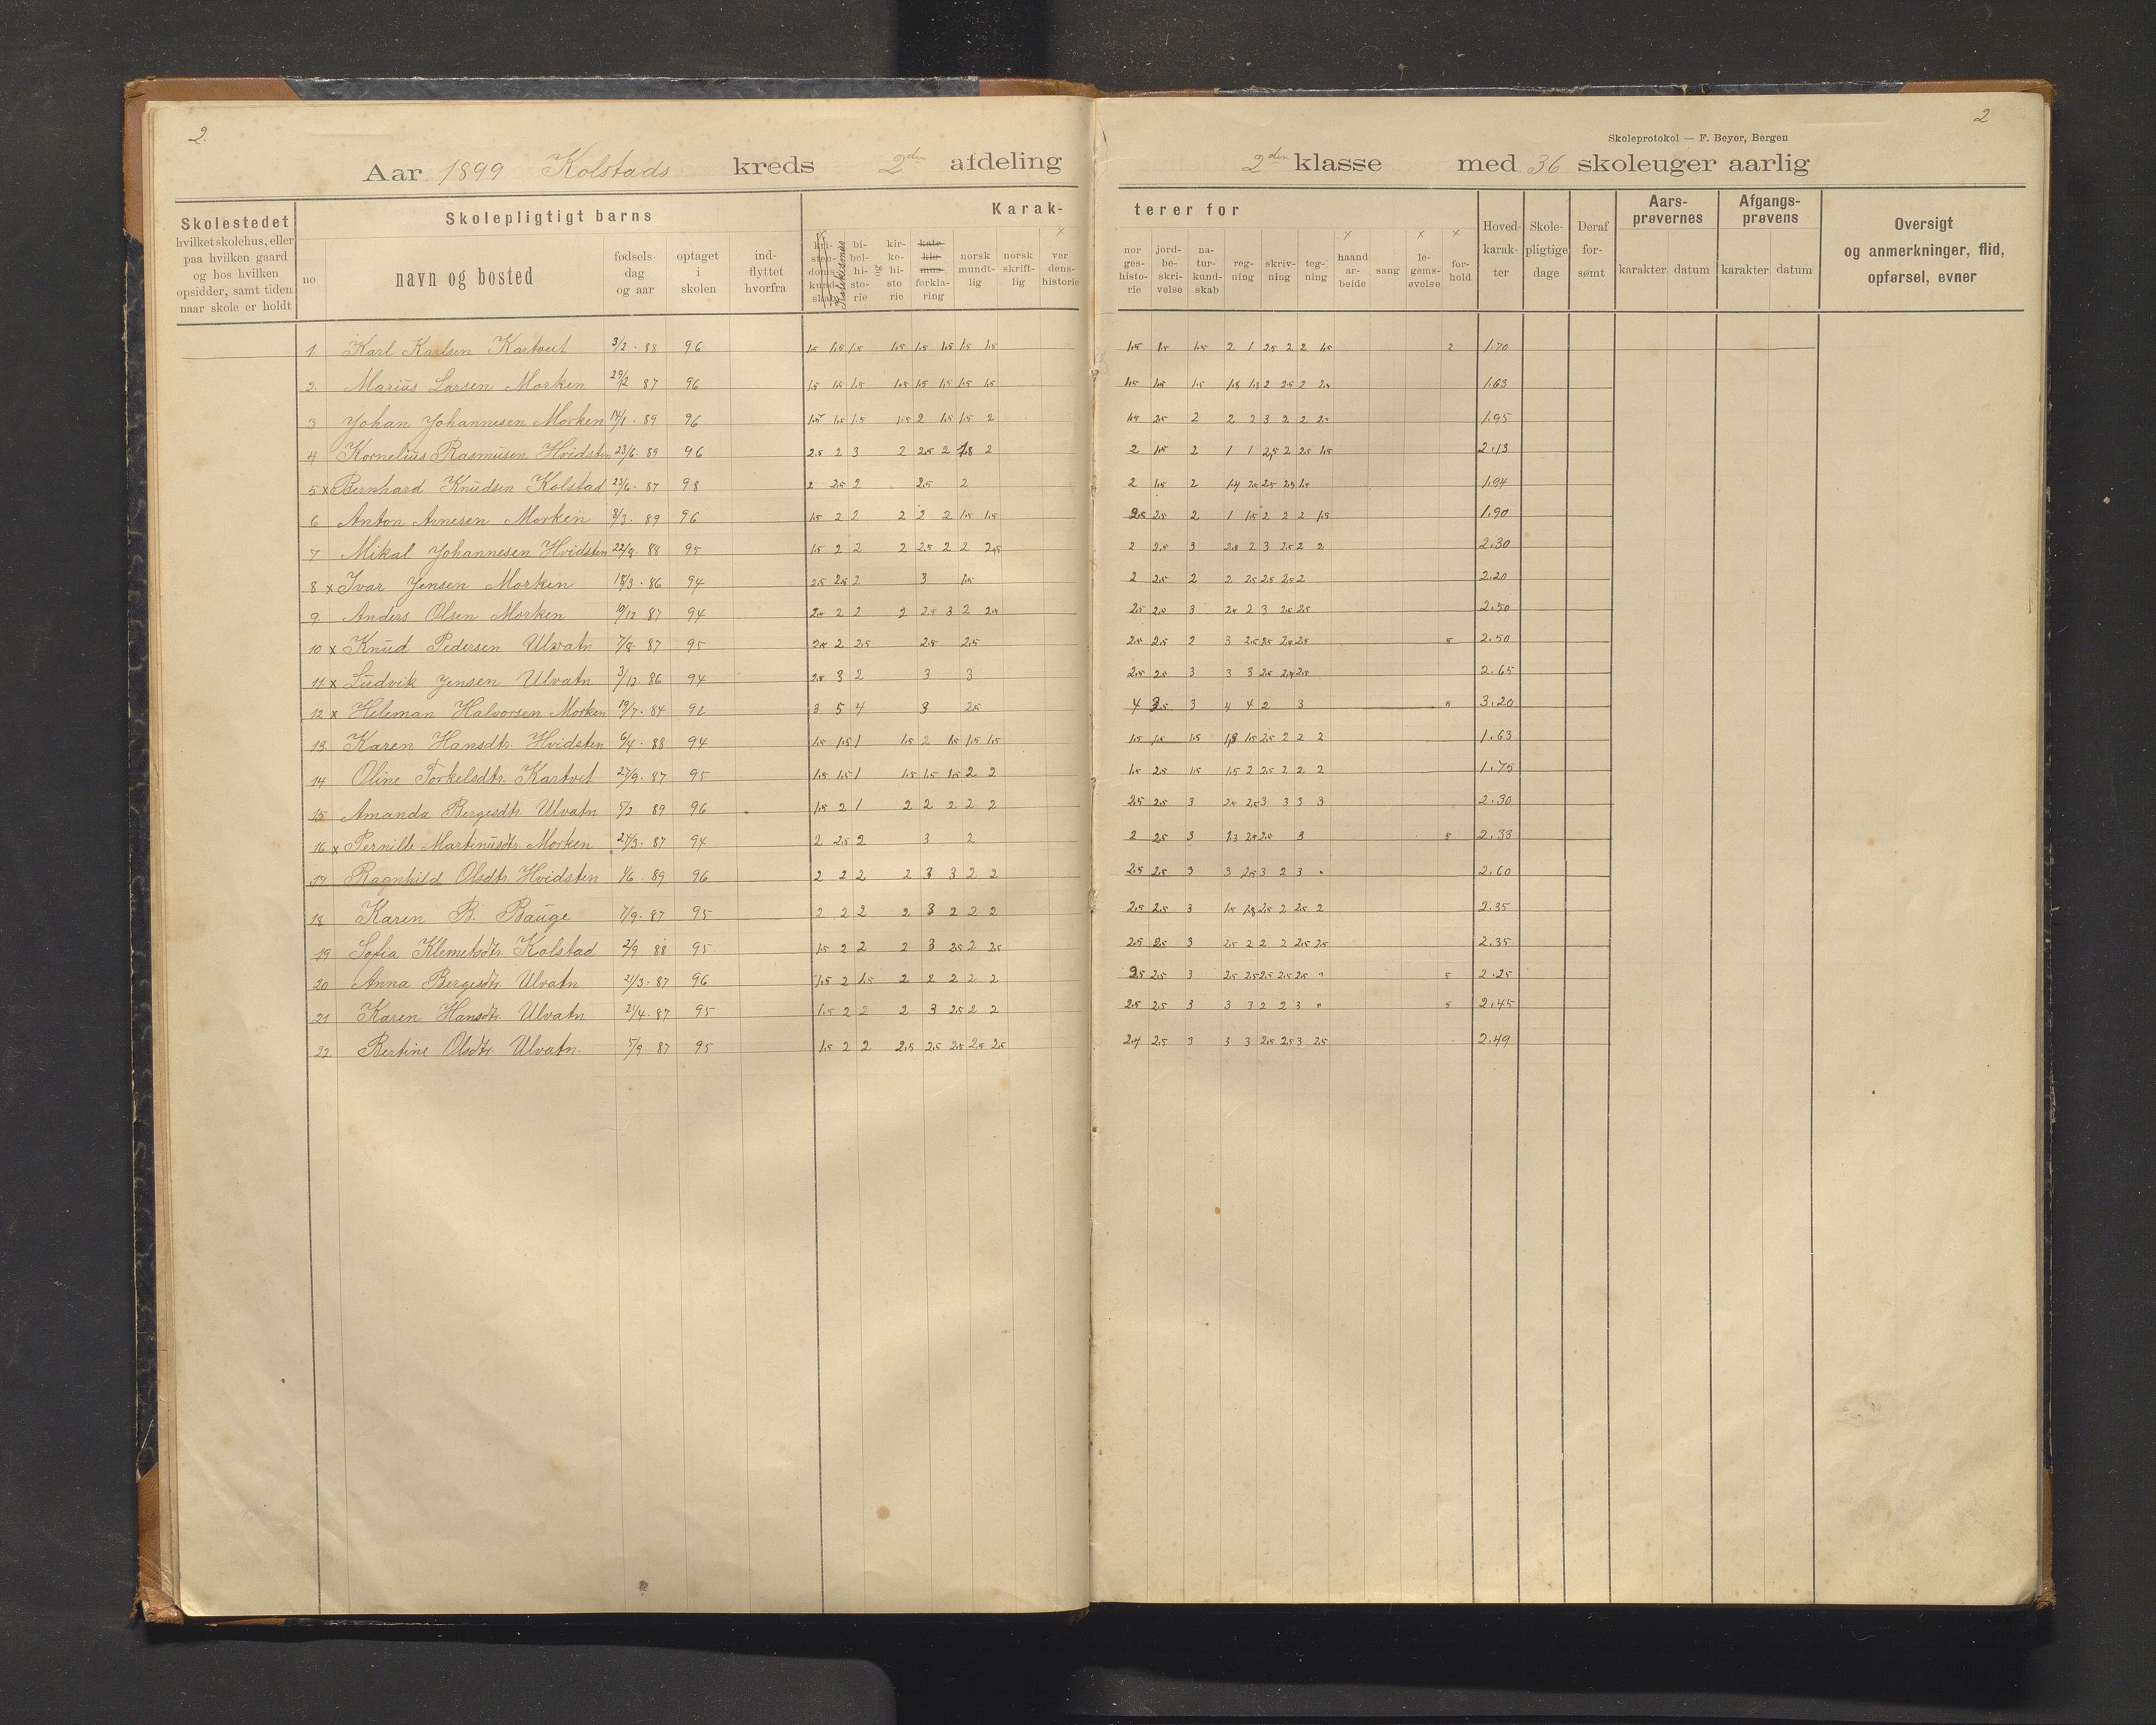 2.
2
Skoleprotokol — F. Beyer, Bergen
Aar 1899 Kolstads kreds 2den afdeling 2den klasse med 36 skoleuger aarlig
Skolestedet
hvilket skolehus, eller
paa hvilken gaard
og hos hvilken
opsidder, samt tiden
naar skole er holdt
Skolepligtigt barns
no
navn og bosted
fødsels-
dag
og aar
optaget
i
skolen
ind-
flyttet
hvorfra
Karak-
kri-
sten-
doms-
kund-
skab
Katekismus
bi-
bel-
hi-
sto-
rie
og
kir-
ke-
hi-
sto
rie
kate-
kis-
mus-
forkla-
ring
norsk
mundt-
lig
norsk
skrift-
lig
ver
dens-
historie
terer for
nor
ges-
histo-
rie
jord-
be-
skri-
velse
na-
tur-
kund-
skab
reg-
ning
skriv-
ning
teg-
ning
haand
ar-
beide
sang
le-
gems-
øvelse
for-
hold
Hoved-
karak-
ter
Skole-
pligtige
dage
Deraf
for-
sømt
Aars-
prøvernes
karakter datum
Afgangs-
prøvens
karakter datum
Oversigt
og anmerkninger, flid,
opførsel, evner
1. Karl Karlsen Kartveit 3/2 - 88 96 1.5 1.5 1.5 1.5 1.5 1.5 1.5 1.5 1.5 1.5 1.5 2 1 2.5 2 2 1.5 2 1.70
2. Marius Larsen Morken 29/2 87 96 1.5 1.5 1.5 1.5 1.5 1.5 1.5 1.5 1.5 1.5 1.5 1.8 1.8 2 2.5 2 2.5 1.63
3 Johan Johannesen Morken 14/1 - 89 96 1.5 1.5 1.5 1.5 2 1.5 1.5 2 1.5 2.5 2 2 2 3 2 2 2.5 1.95
4 Kornelius Rasmusen Hvidsten 23/6 - 89 96 2.5 2 3 2 2.5 2 1.8 2 2 1.5 2 1 1 2.5 2 2.5 1.5 2.13
5 x Bernhard Knudsen Kolstad 23/6 - 87 98 2 2.5 2 2.5 2 2 1.5 2 1.4 2.5 2.5 2.5 1.5 1.94
6 Anton Arnesen Morken 8/3 - 89 96 1.5 2 2 2 2 2 1.5 1.5 2.5 2.5 2 1 1.5 2 2 2 1.5 1.90
7 Mikal Johannesen Hvidsten 22/8 - 88 95 1.5 2 2 2 2.5 2 2 2.5 2 2.5 3 2.8 2 3 2.5 2 2 2.30
8 x Ivar Jensen Morken 18/3 - 86 94 2.5 2.5 2 3 1.5 2 2.5 2 2 2.5 2.5 2.5 2 2.20
9 Anders Olsen Morken 10/12 87 94 2.5 2 2 2 2.5 3 2 2.5 2.5 2.5 3 2.5 2 3 2.5 2.5 2.50
10 x Knud Pedersen Ulvatn 7/8 - 87 95 2.5 2 2.5 2.5 2.5 2.5 2.5 2 3 2.5 2.5 2.5 2.5 5 2.50
11 x Ludvik Jensen Ulvatn 3/12 - 86 94 2.5 3 2 3 3 2.5 2.5 3 3 3 2.5 2.5 2.5 2.65
12 x Heleman Halvorsen Morken 19/7 - 84 92 3 5 4 3 2.5 4 3.5 3 4 4 2 3 5 3.20
13 Karen Hansdtr. Hvidsten 6/4 - 88 94 1.5 1.5 1 1.5 2 1.5 1.5 1.5 1.5 1.5 1.5 1.3 1.5 2.5 2 2 2 1.63
14 Oline Torkelsdtr. Kartvet 27/9 - 87 95 1.5 1.5 1 1.5 1.5 1.5 2 2 1.5 2.5 1.5 1.5 2 2.5 2 2 2 1.75
15 Amanda Bergesdtr Ulvatn 5/2 89 96 1.5 2 1 2 2 2 2 2 2.5 2.5 3 2.5 2.5 3 3 3 3 2.30
16 x Pernille Martinusdtr. Morken 24/3 - 87 94 2 2.5 2 3 2 2 2.5 3 2.3 2.5 2.5 3 5 2.33
17 Ragnhild Olsdtr. Hvidsten 1/6 - 89 96 2 2 2 2 3 3 2 2 2.5 2.5 3 3 2.5 3 2 3 " 2.60
18 Karen B. Bauge 7/9 - 87 95 2 2 2 2 3 2 2 2 2.5 2.5 3 1.5 1.8 2.5 2 2.5 2 2.35
19 Sofia Klemetsdtr. Kolstad 2/9 88 95 1.5 2 2 2 3 2.5 2 2.5 2.5 2.5 3 2.5 2 2 2 2.5 2.5 2.35
20 Anna Bergesdtr. Ulvatn 21/3 - 87 96 1.5 2 1.5 2 2 2 2 2 2.5 2.5 3 2.5 2.5 2.5 2.5 2.5 " 5 2.25
21 Karen Hansdtr. Ulvatn 21/4 - 87 95 1.5 2 2 2 3 2.5 2 2 2.5 2.5 3 3 3 2 2 3 " 5 2.45
22 Bertine Olsdtr. Ulvatn. 5/9 87 95 1.5 2 2 2.5 2.5 2.5 2.5 2.5 2.4 2.5 3 3 3 2.5 2.5 3 2.5 2.49